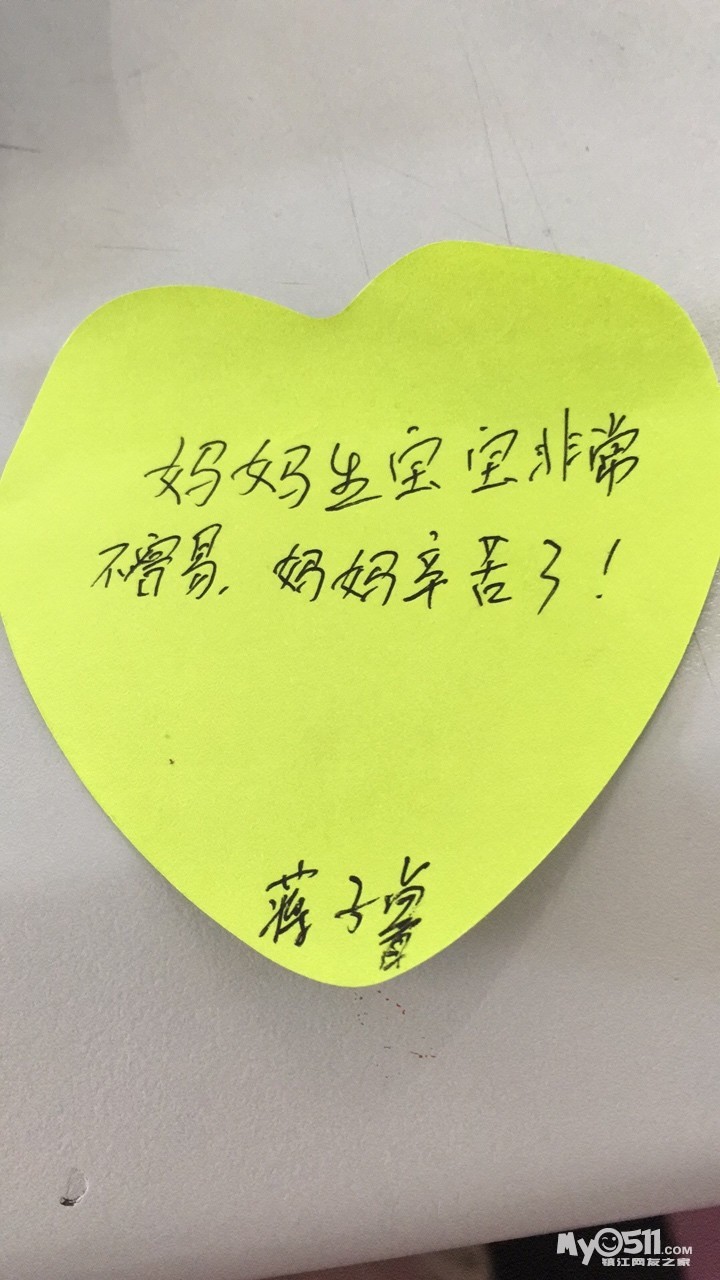 妈妈生宝宝非常
不容易，妈妈辛苦了！
蒋子
My0511.COM
镇江网友之家